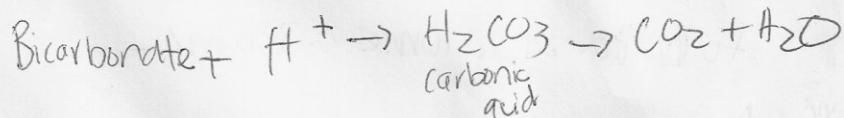 Bicarbonate + H+ → H2CO3 → CO2 + H2O
carbonic
acid